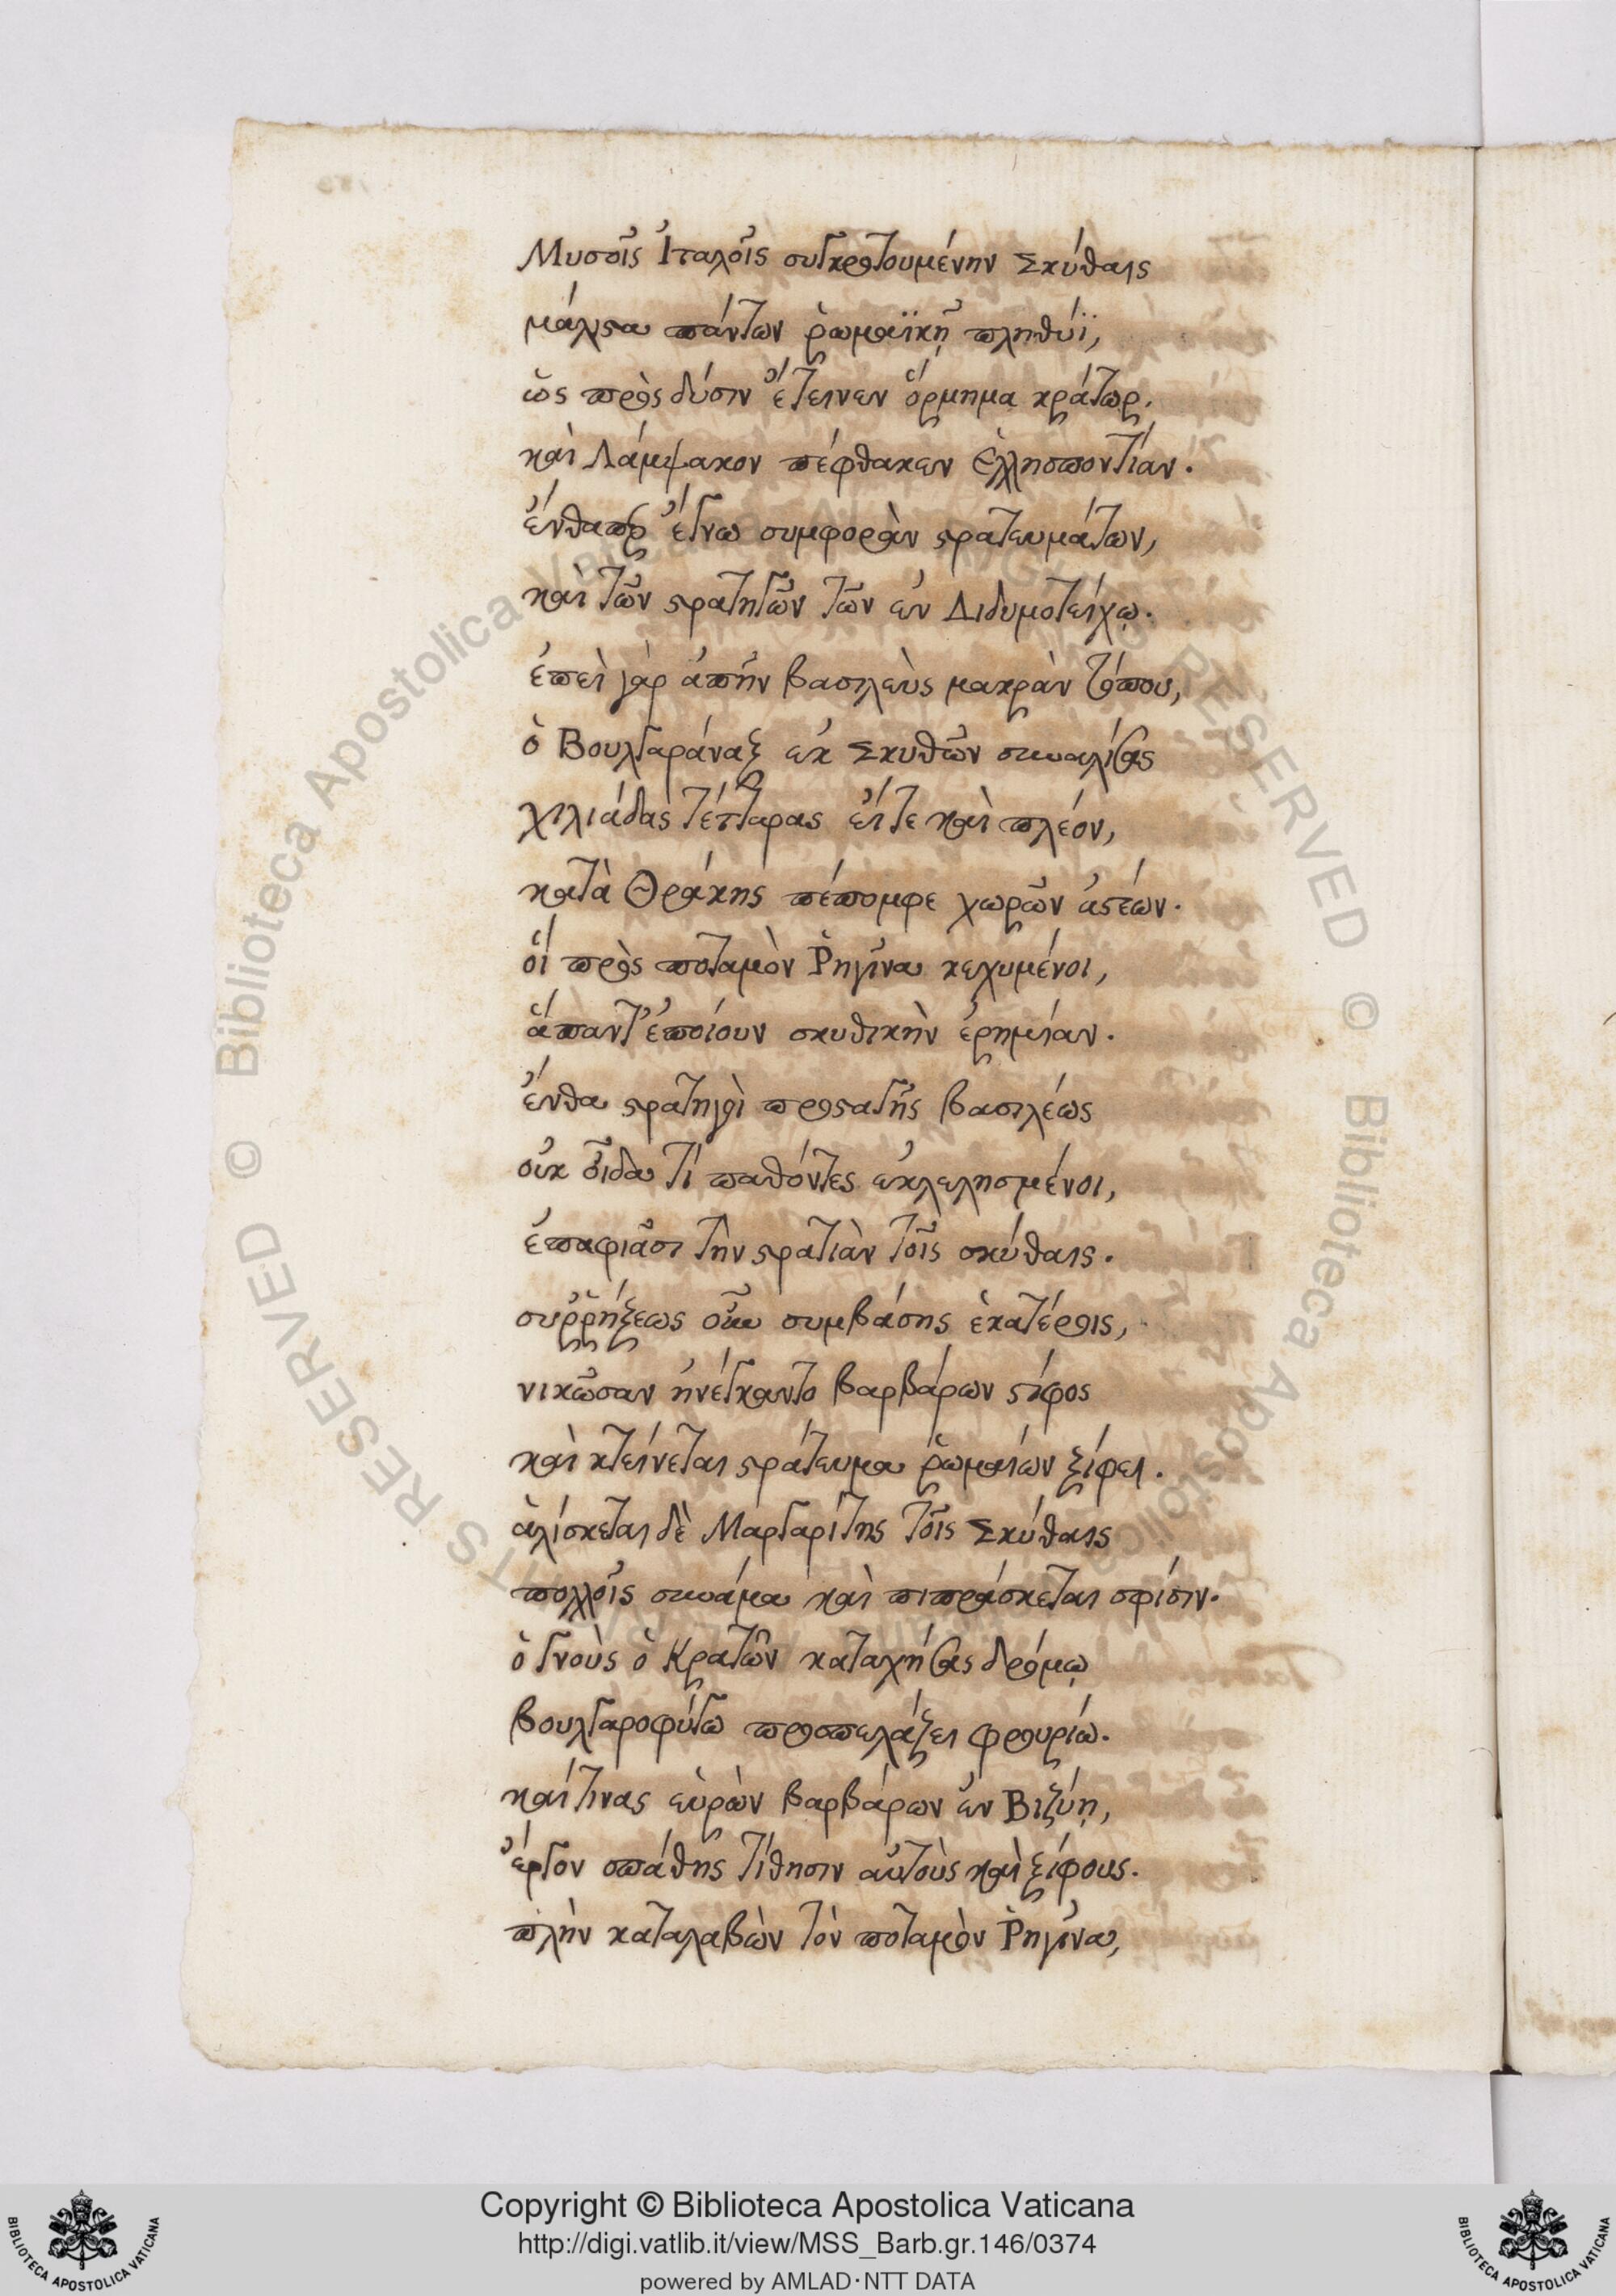 Μυσοῖς Ἰταλοῖς συγκροτουμένην Σκύθαις
μάλιστα πάντων ῥωμαϊκῇ πληθύϊ,
ὡς πρὸς δύσιν ἔτεινεν ὅρμημα κράτωρ.
καὶ Λάμψακον πέφθακεν ἑλλησποντίαν.
ἔνθαπερ ἔγνω συμφορὰν στρατευμάτων,
καὶ τῶν στρατηγῶν τῶν ἐν Διδυμοτείχῳ.
ἐπεὶ γὰρ ἀπῆν βασιλεὺς μακρὰν τόπου,
ὁ Βουλγαράναξ ἐκ Σκυθῶν συναλίσας
χιλιάδας τέτταρας εἴτε καὶ πλέον,
κατὰ Θράκης πέπομφε χωρῶν ἀστέων.
οἳ πρὸς ποταμὸν Ῥηγῖνα κεχυμένοι,
ἅπαντ' ἐποίουν σκυθικὴν ἐρημίαν.
ἔνθα στρατηγοὶ προσταγῆς βασιλέως
οὐκ οἶδα τί παθόντες ἐκλελησμένοι,
ἐπαφιᾶσι τὴν στρατιὰν τοῖς σκύθαις.
συῤῥήξεως οὖν συμβάσης ἑκατέροις,
νικῶσαν ἠνέγκαντο βαρβάρων στίφος
καὶ κτείνεται στράτευμα ῥωμαίων ξίφει.
ἁλίσκεται δὲ Μαργαρίτης τοῖς Σκύθαις
πολλοῖς συνάμα καὶ πιπράσκεται σφίσιν.
ὁ γνοὺς ὁ Κρατῶν καταχήσας δρόμῳ
βουλγαροφύγῳ προσπελάζει φρουρίῳ.
καί τινας εὑρὼν βαρβάρων ἐν Βιζύῃ,
ἔργον σπάθης τίθησιν αὐτοὺς καὶ ξίφους.
πλὴν καταλαβὼν τὸν ποταμὸν Ῥηγῖνα,
Copyright © Biblioteca Apostolica Vaticana
http://digi.vatlib.it/view/MSS_Barb.gr.146/0374
powered by AMLAD·NTT DATA
BIBLIOTECA APOSTOLICA VATICANA
BIBLIOTECA APOSTOLICA VATICANA